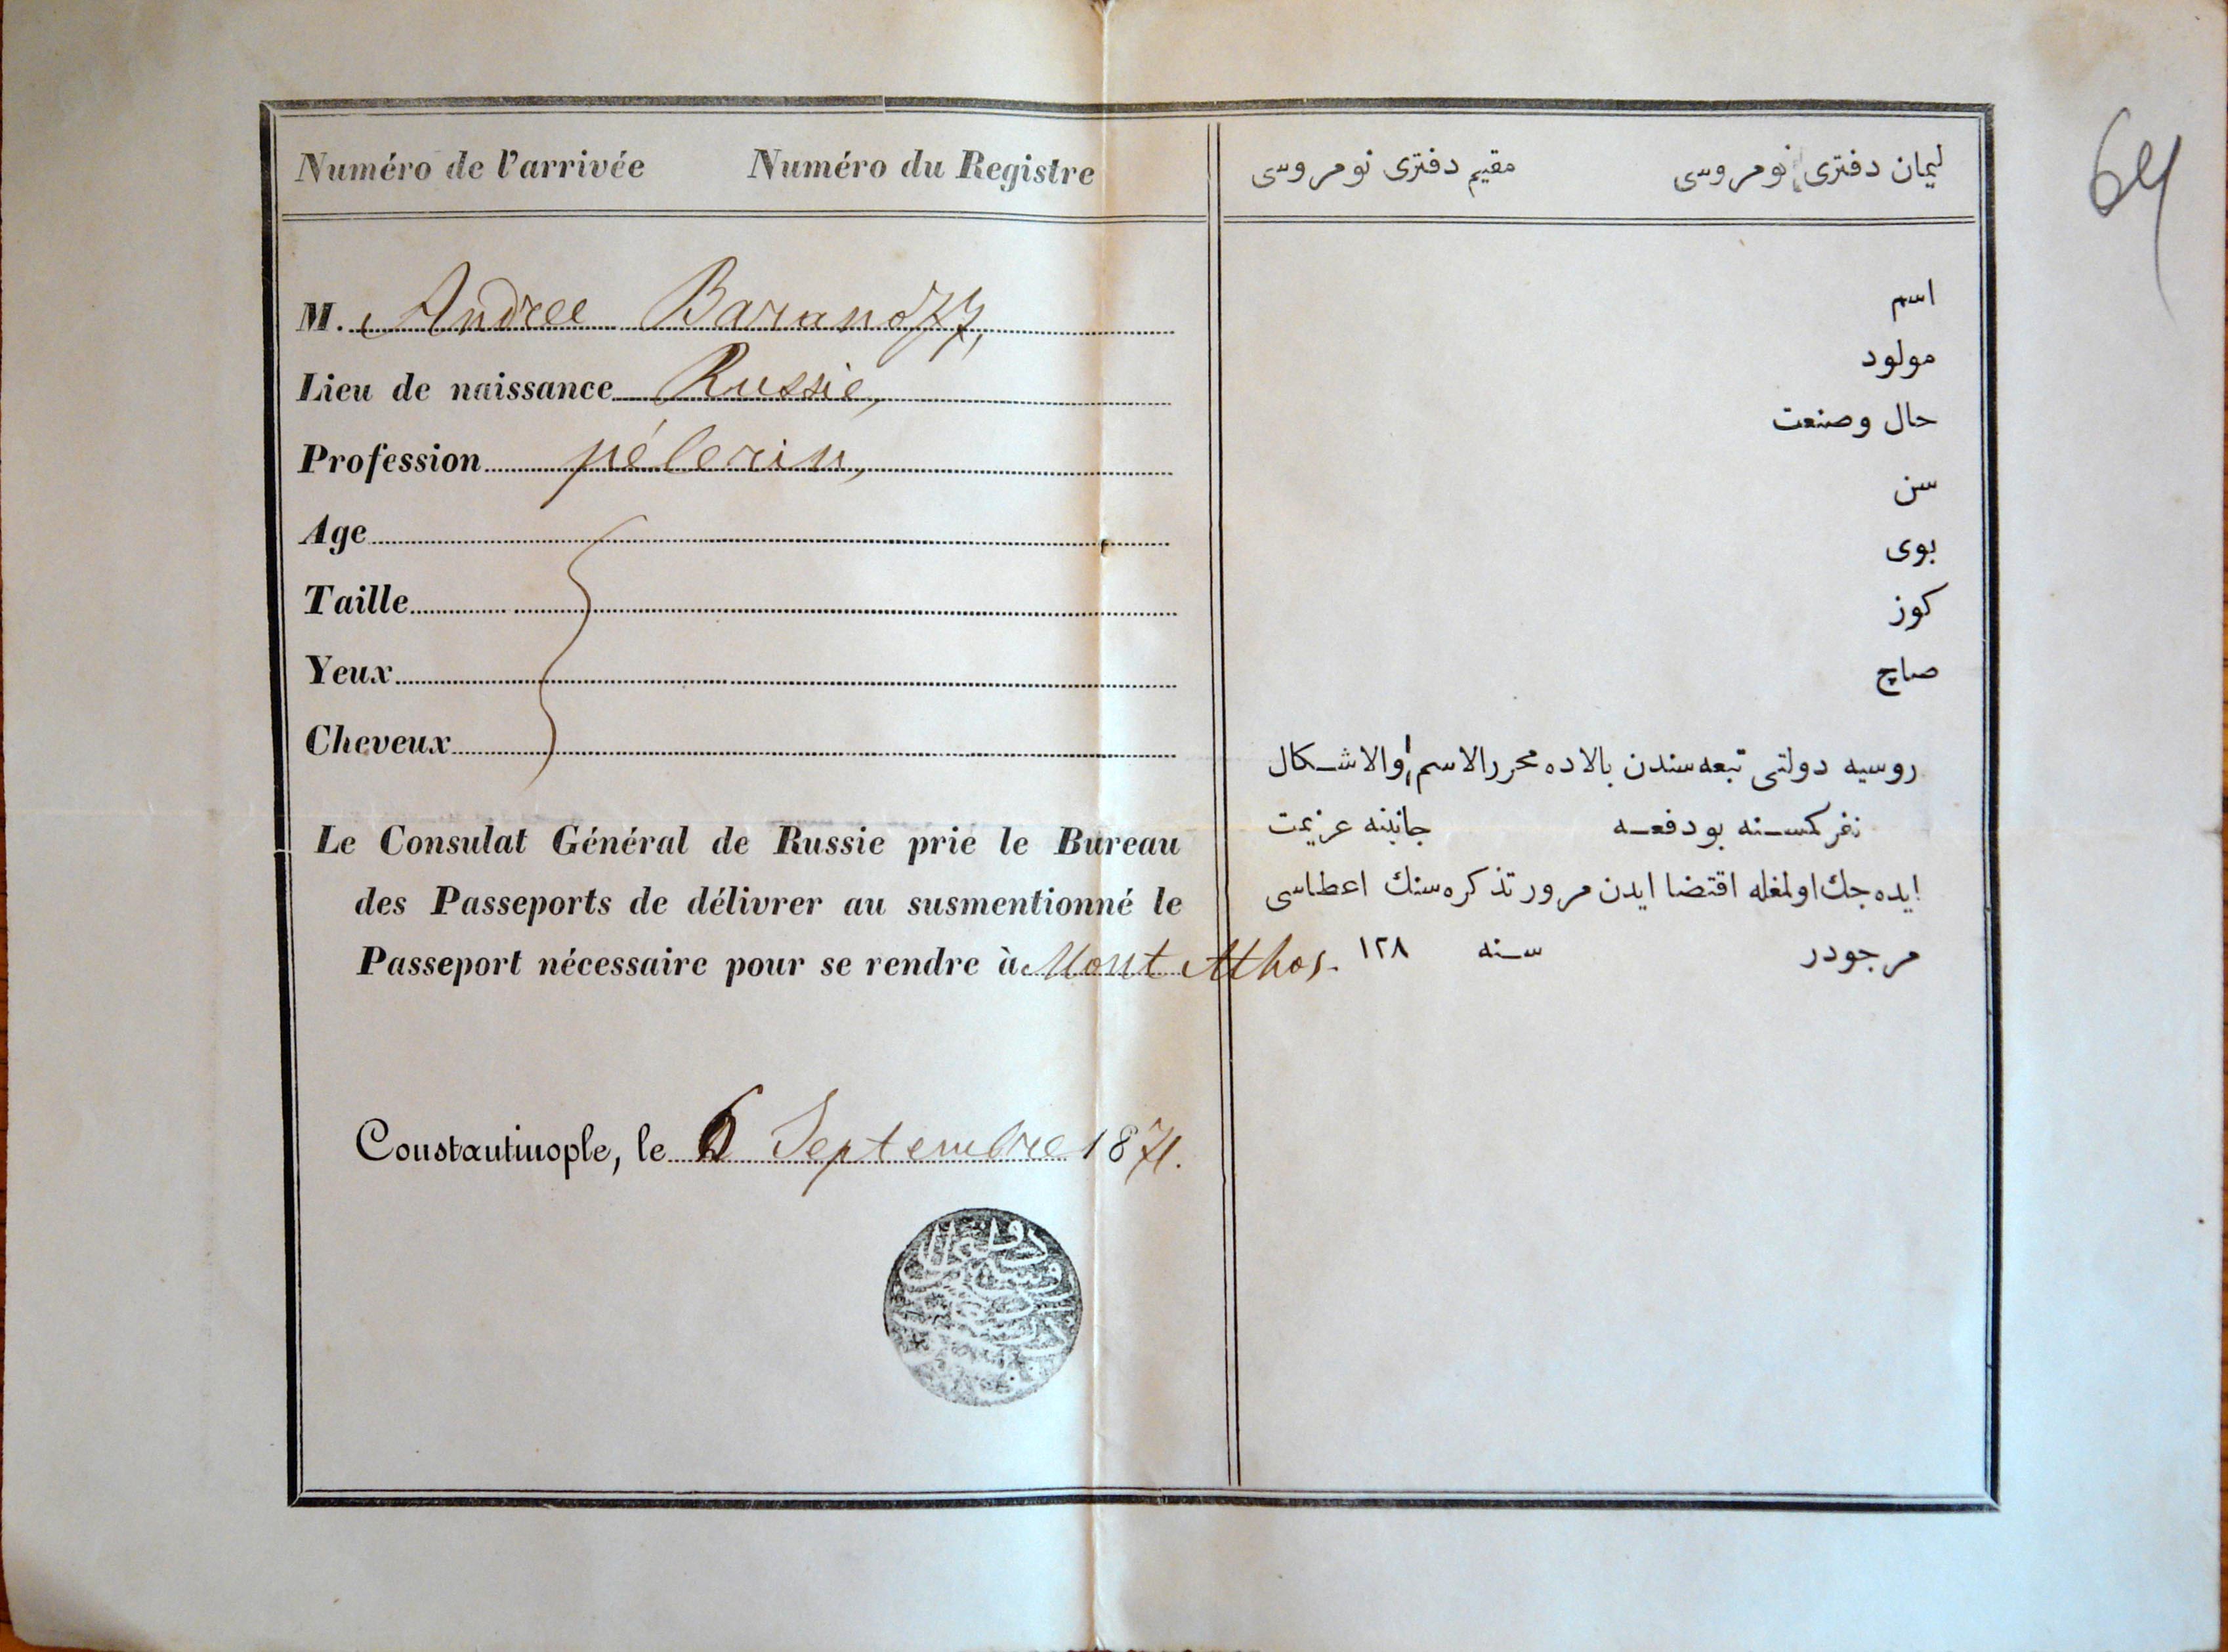 Numéro de l'arrivée Numéro du Registre
M. Andree Baranoff,
Lieu de naissance Russie,
Profession pélerin,
Age
Taille
Yeux
Cheveux
Le Consulat Général de Russie prie le Bureau
des Passeports de délivrer au susmentionné le
Passeport nécessaire pour se rendre à Mont Athos.
Constantinople, le 6 Septembre 1871.
ليمان دفتری نومروسی مقيم دفتری نومروسی
اسم
مولود
حال وصنعت
سن
بوی
كوز
صاچ
روسيه دولتی تبعه سندن بالاده محررالاسم والاشكال
نفر كمسنه بودفعه جانبنه عزيمت
ايده جك اولمغله اقتضا ايدن مرور تذكره سنك اعطاسی
مرجودر سنه ١٢٨
64